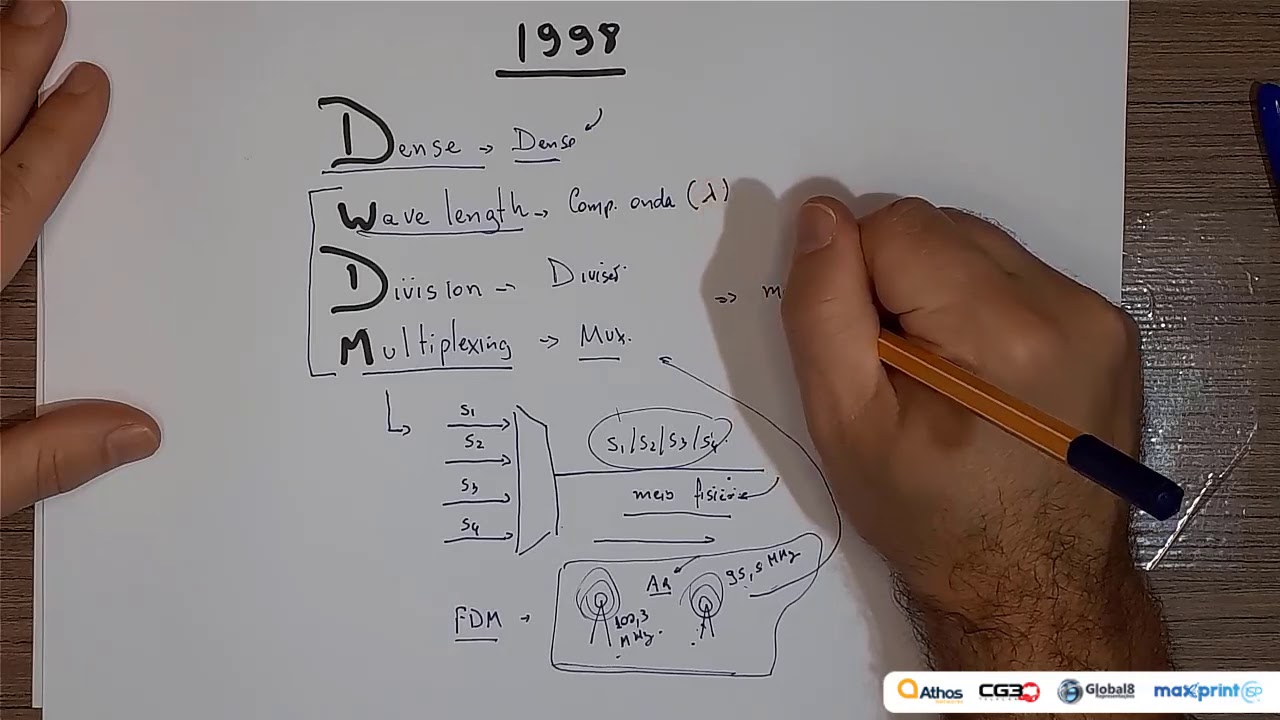 1998
Dense → Dense
Wave length → Comp. onda (λ)
Division → Divisão
Multiplexing → Mux.
S1
S2
S3
S4
S1/S2/S3/S4
meio físico
FDM →
AR
100,3 MHz
95,5 MHz
Athos
CG3
Global8
Representações
maxprint ISP